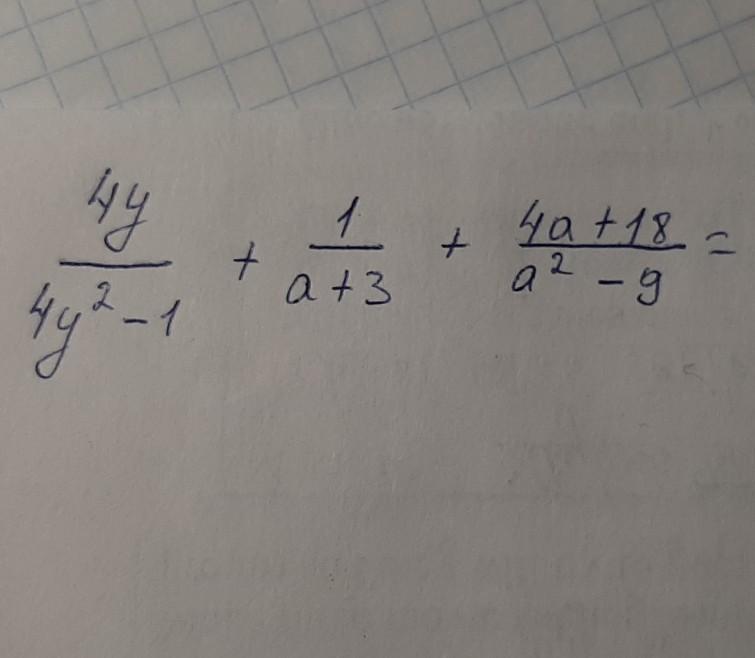 4y/(4y² - 1) + 1/(a + 3) + (4a + 18)/(a² - 9) =